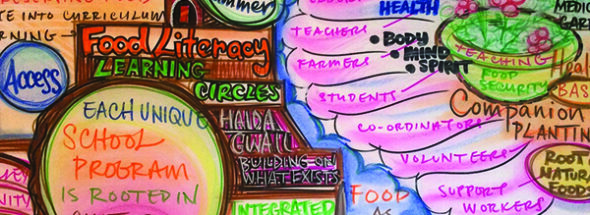 TE INTO CURRICULUM
RNING
Access
Food Literacy
LEARNING
CIRCLES
HAIDA
GWAII
BUILDING ON
WHAT EXISTS
INTEGRATED
EACH UNIQUE
SCHOOL
PROGRAM
IS ROOTED IN
HEALTH
• BODY
• MIND
• SPIRIT
TEACHERS
FARMERS
STUDENTS
CO-ORDINATORS
VOLUNTEERS
SUPPORT
WORKERS
FOOD
TEACHING
FOOD
SECURITY
MEDIC
GAR
Heal
BAS
Companion
PLANTIN
ROOT
NATURA
FOODS